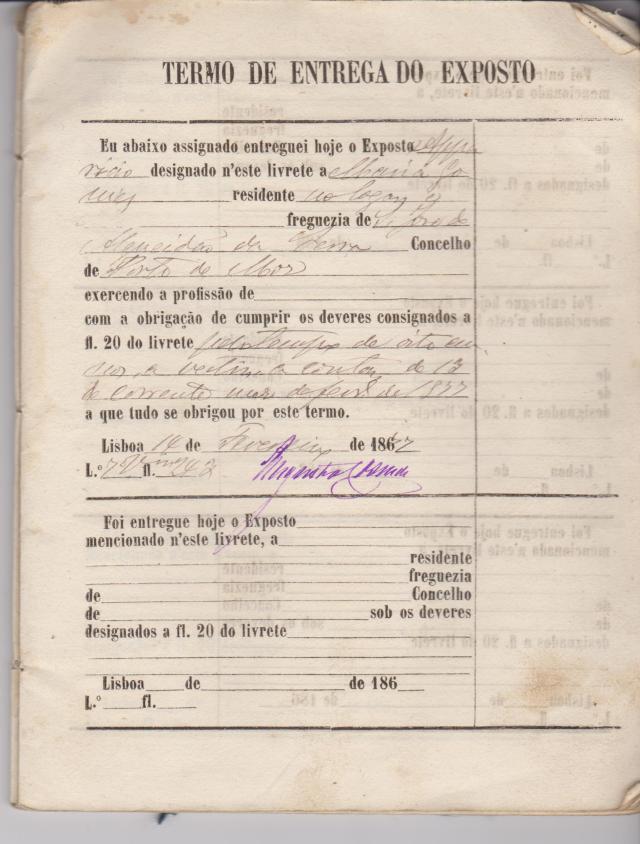 TERMO DE ENTREGA DO EXPOSTO
Eu abaixo assignado entreguei hoje o Exposto
designado n'este livrete a Maria Go
mes residente no logar
freguezia de
da Concelho
de Porto de Moz
exercendo a profissão de
com a obrigação de cumprir os deveres consignados a
fl. 20 do livrete pelo tempo de oito an
nos, a contar de 13
do corrente mez de de 1877
a que tudo se obrigou por este termo.
Lisboa 14 de Fevereiro de 1867
L.º fl. 42
Foi entregue hoje o Exposto
mencionado n'este livrete, a
residente
freguezia
de Concelho
de sob os deveres
designados a fl. 20 do livrete
Lisboa de de 186
L.º fl.